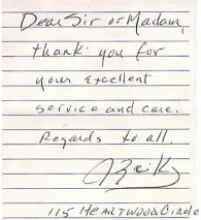 Dear Sir or Madam,
thank you for
your Excellent
service and care.
Regards to all.
115 HEARTWOOD Circle